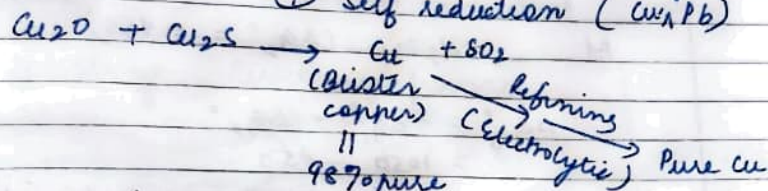 ① Self reduction ( Cu, Pb)
Cu2O + Cu2S ⟶ Cu + SO2
(Blister
copper)
Refining
(Electrolytic)
Pure Cu
||
98% pure